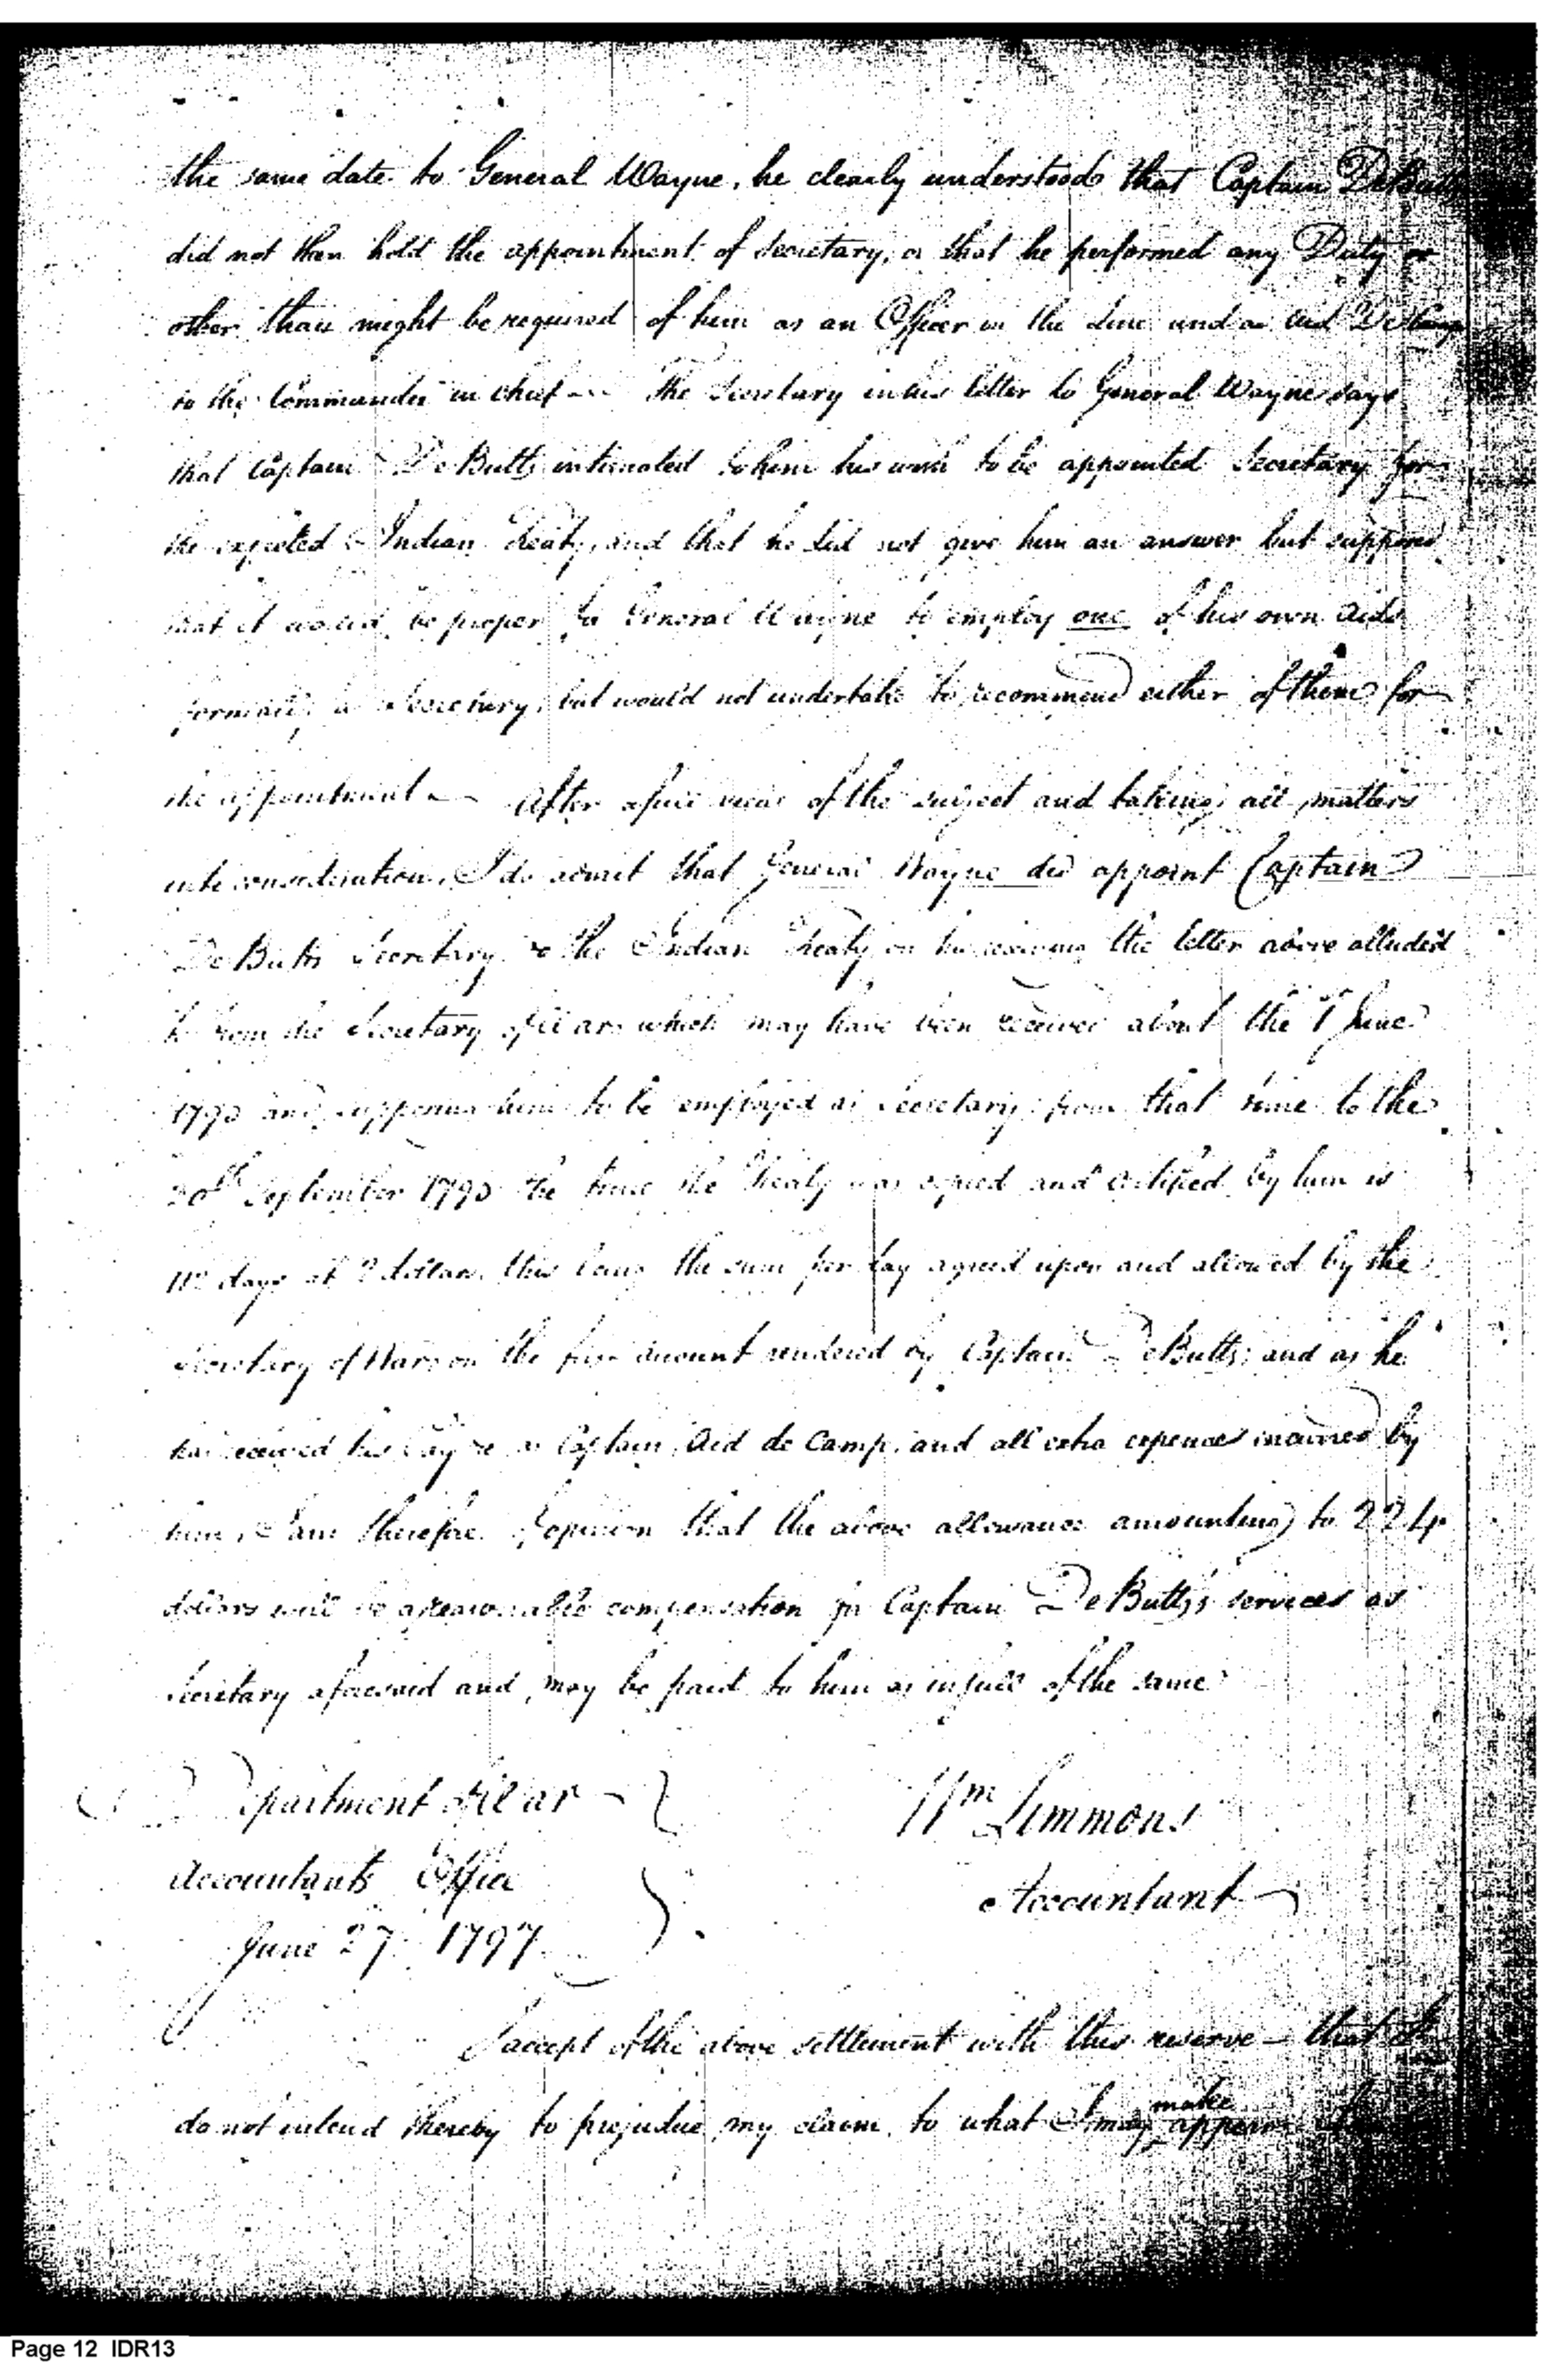 the same date to General Wayne, he clearly understood that Captain DeButts
did not then hold the appointment of Secretary, or that he performed any Duty or
other than might be required of him as an Officer in the Line and as Aid De Camp
to the Commander in chief — The Secretary in his letter to General Wayne says
that Captain DeButts intimated to him his wish to be appointed Secretary for
the expected Indian Treaty, and that he did not give him an answer but supposed
that it would be proper for General Wayne to employ one of his own Aids
formally as Secretary, but would not undertake to recommend either of them for
the appointment — After a full view of the subject and taking all matters
into consideration, I do admit that General Wayne did appoint Captain
DeButts Secretary to the Indian Treaty on his receiving the letter above alluded
to from the Secretary of War which may have been received about the 1st June
1795 and supposing him to be employed as Secretary from that time to the
20th September 1795 the time the Treaty was signed and certified by him is
112 days at 2 dollars, this being the sum per day agreed upon and allowed by the
Secretary of War on the first account rendered by Captain DeButts; and as he
has received his Pay &c as Captain, Aid de Camp, and all extra expences incurred by
him, I am therefore of opinion that the above allowance amounting to 224
dollars will be a reasonable compensation for Captain DeButts's services as
Secretary aforesaid and may be paid to him as in full of the same
Department of War
Wm Simmons
Accountants Office
Accountant
June 27 1797
I accept of the above settlement with this reserve — that I
do not intend thereby to prejudice my claim, to what I may make appear
Page 12 IDR13